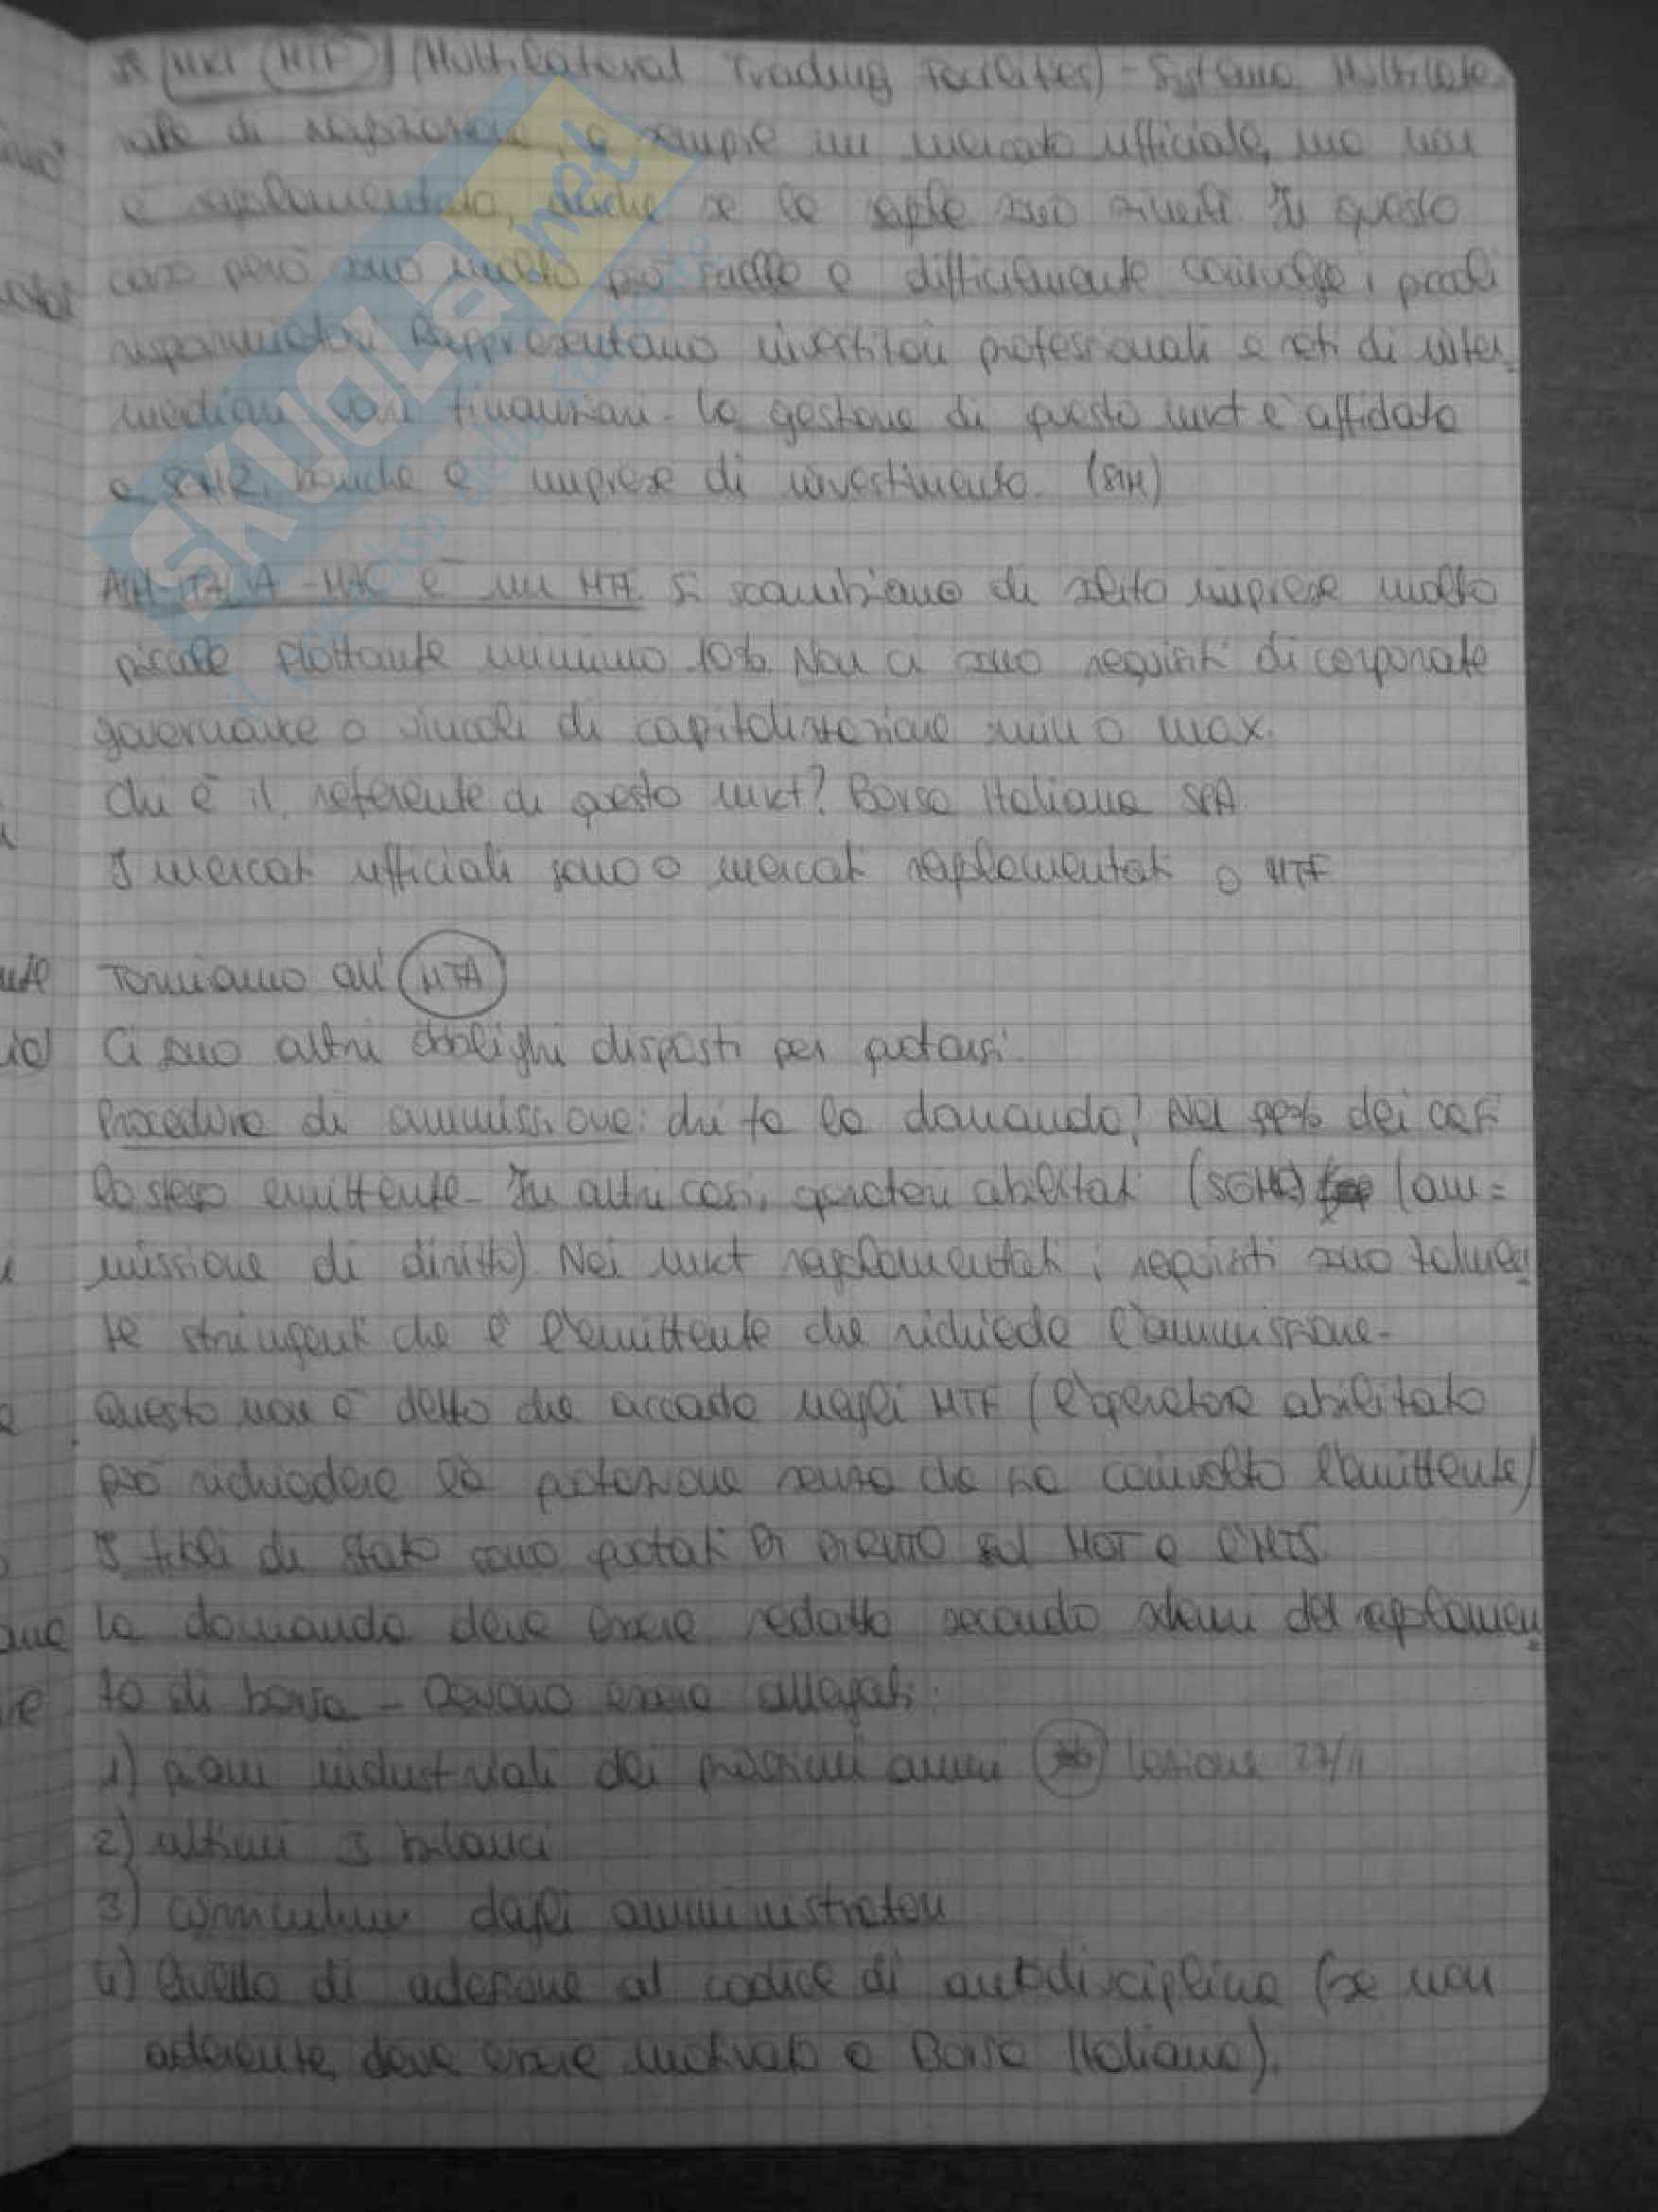 Il MKT MTF (Multilateral Trading Facilities) - Sistema Multilate
rale di negoziazione, è sempre un mercato ufficiale, ma non
è regolamentato, anche se le regole sono simili. In questo
caso però sono molto più snelle e difficilmente coinvolge i piccoli
risparmiatori. Rappresentano investitori professionali e reti di inter=
mediari finanziari. La gestione di questo mkt è affidata
a SGMR, banche e imprese di investimento. (SIM)
AIM-ITALIA - MAC è un MTF. Si scambiano di solito imprese molto
piccole flottante minimo 10%. Non ci sono requisiti di corporate
governance o vincoli di capitalizzazione min o max.
Chi è il referente di questo mkt? Borsa Italiana SPA.
I mercati ufficiali sono o mercati regolamentati o MTF.
Torniamo all' MTA
Ci sono altri obblighi disposti per quotarsi:
Procedura di ammissione: chi fa la domanda? Nel 99% dei casi
lo stesso emittente. In altri casi, operatori abilitati (SGMR) (am=
missione di diritto). Nei mkt regolamentati i requisiti sono talmen=
te stringenti che è l'emittente che richiede l'ammissione.
Questo non è detto che accada negli MTF (l'operatore abilitato
può richiedere la quotazione senza che sia coinvolto l'emittente)
I titoli di stato sono quotati DI DIRITTO sul MOT e l'MTS
La domanda deve essere redatta secondo schemi del regolamen=
to di borsa - Devono essere allegati:
1) piani industriali dei prossimi anni lezione 27/11
2) ultimi 3 bilanci
3) curriculum degli amministratori
4) livello di adesione al codice di autodisciplina (se non
aderente, deve essere motivato a Borsa Italiana).
SKUOLA.net